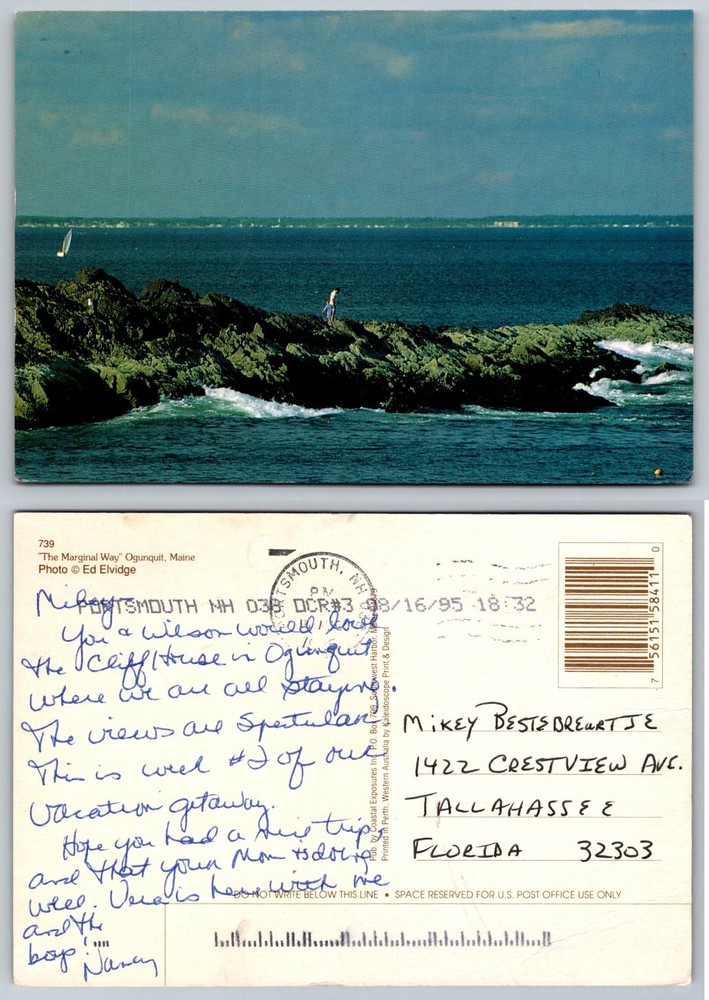 739
"The Marginal Way" Ogunquit, Maine
Photo © Ed Elvidge
PORTSMOUTH, NH
PM
PORTSMOUTH NH 038 OCR#3 08/16/95 18:32
Mikey –
You & Wilson would love
the Cliff House in Ogunquit
where we are all staying.
The views are Spectular.
This is week #2 of our
vacation getaway.
Hope you had a nice trip
and that your Mom is doing
well. Vera is here with me
and the
boys.
Nancy
Pub. by Coastal Exposures Inc. P.O. Box 789, Southwest Harbor, Maine
Printed in Perth, Western Australia by Kaleidoscope Print & Design
0
56151 58411
7
MIKEY BESTEBREURTJE
1422 CRESTVIEW AVE.
TALLAHASSEE
FLORIDA 32303
DO NOT WRITE BELOW THIS LINE • SPACE RESERVED FOR U.S. POST OFFICE USE ONLY